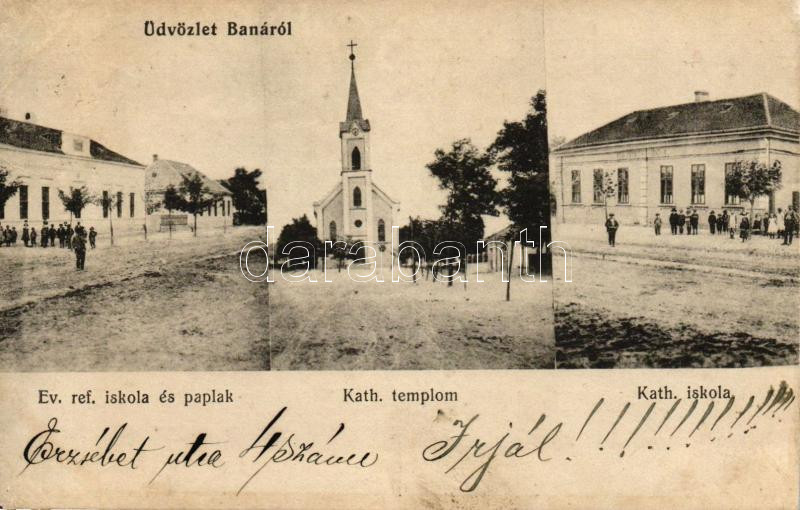 Üdvözlet Banáról
darabanth
Ev. ref. iskola és paplak
Kath. templom
Kath. iskola
Erzsébet utca 4 száme
Irjál!!!!!!!!!!!